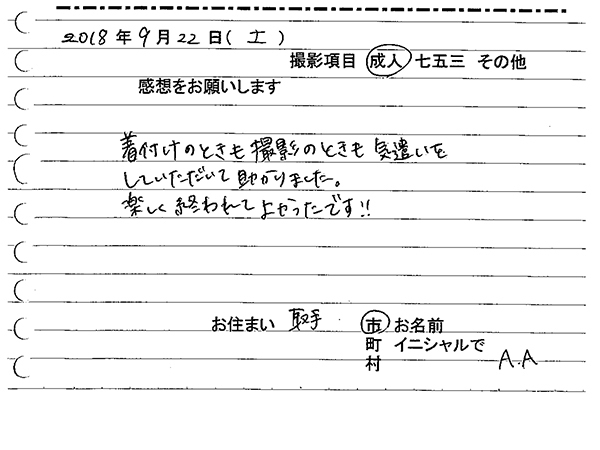 2018年9月22日(土)
撮影項目 成人 七五三 その他
感想をお願いします
着付けのときも撮影のときも気遣いを
していただいて助かりました。
楽しく終われてよかったです!!
お住まい 取手 市 お名前
町 イニシャルで
村 A.A